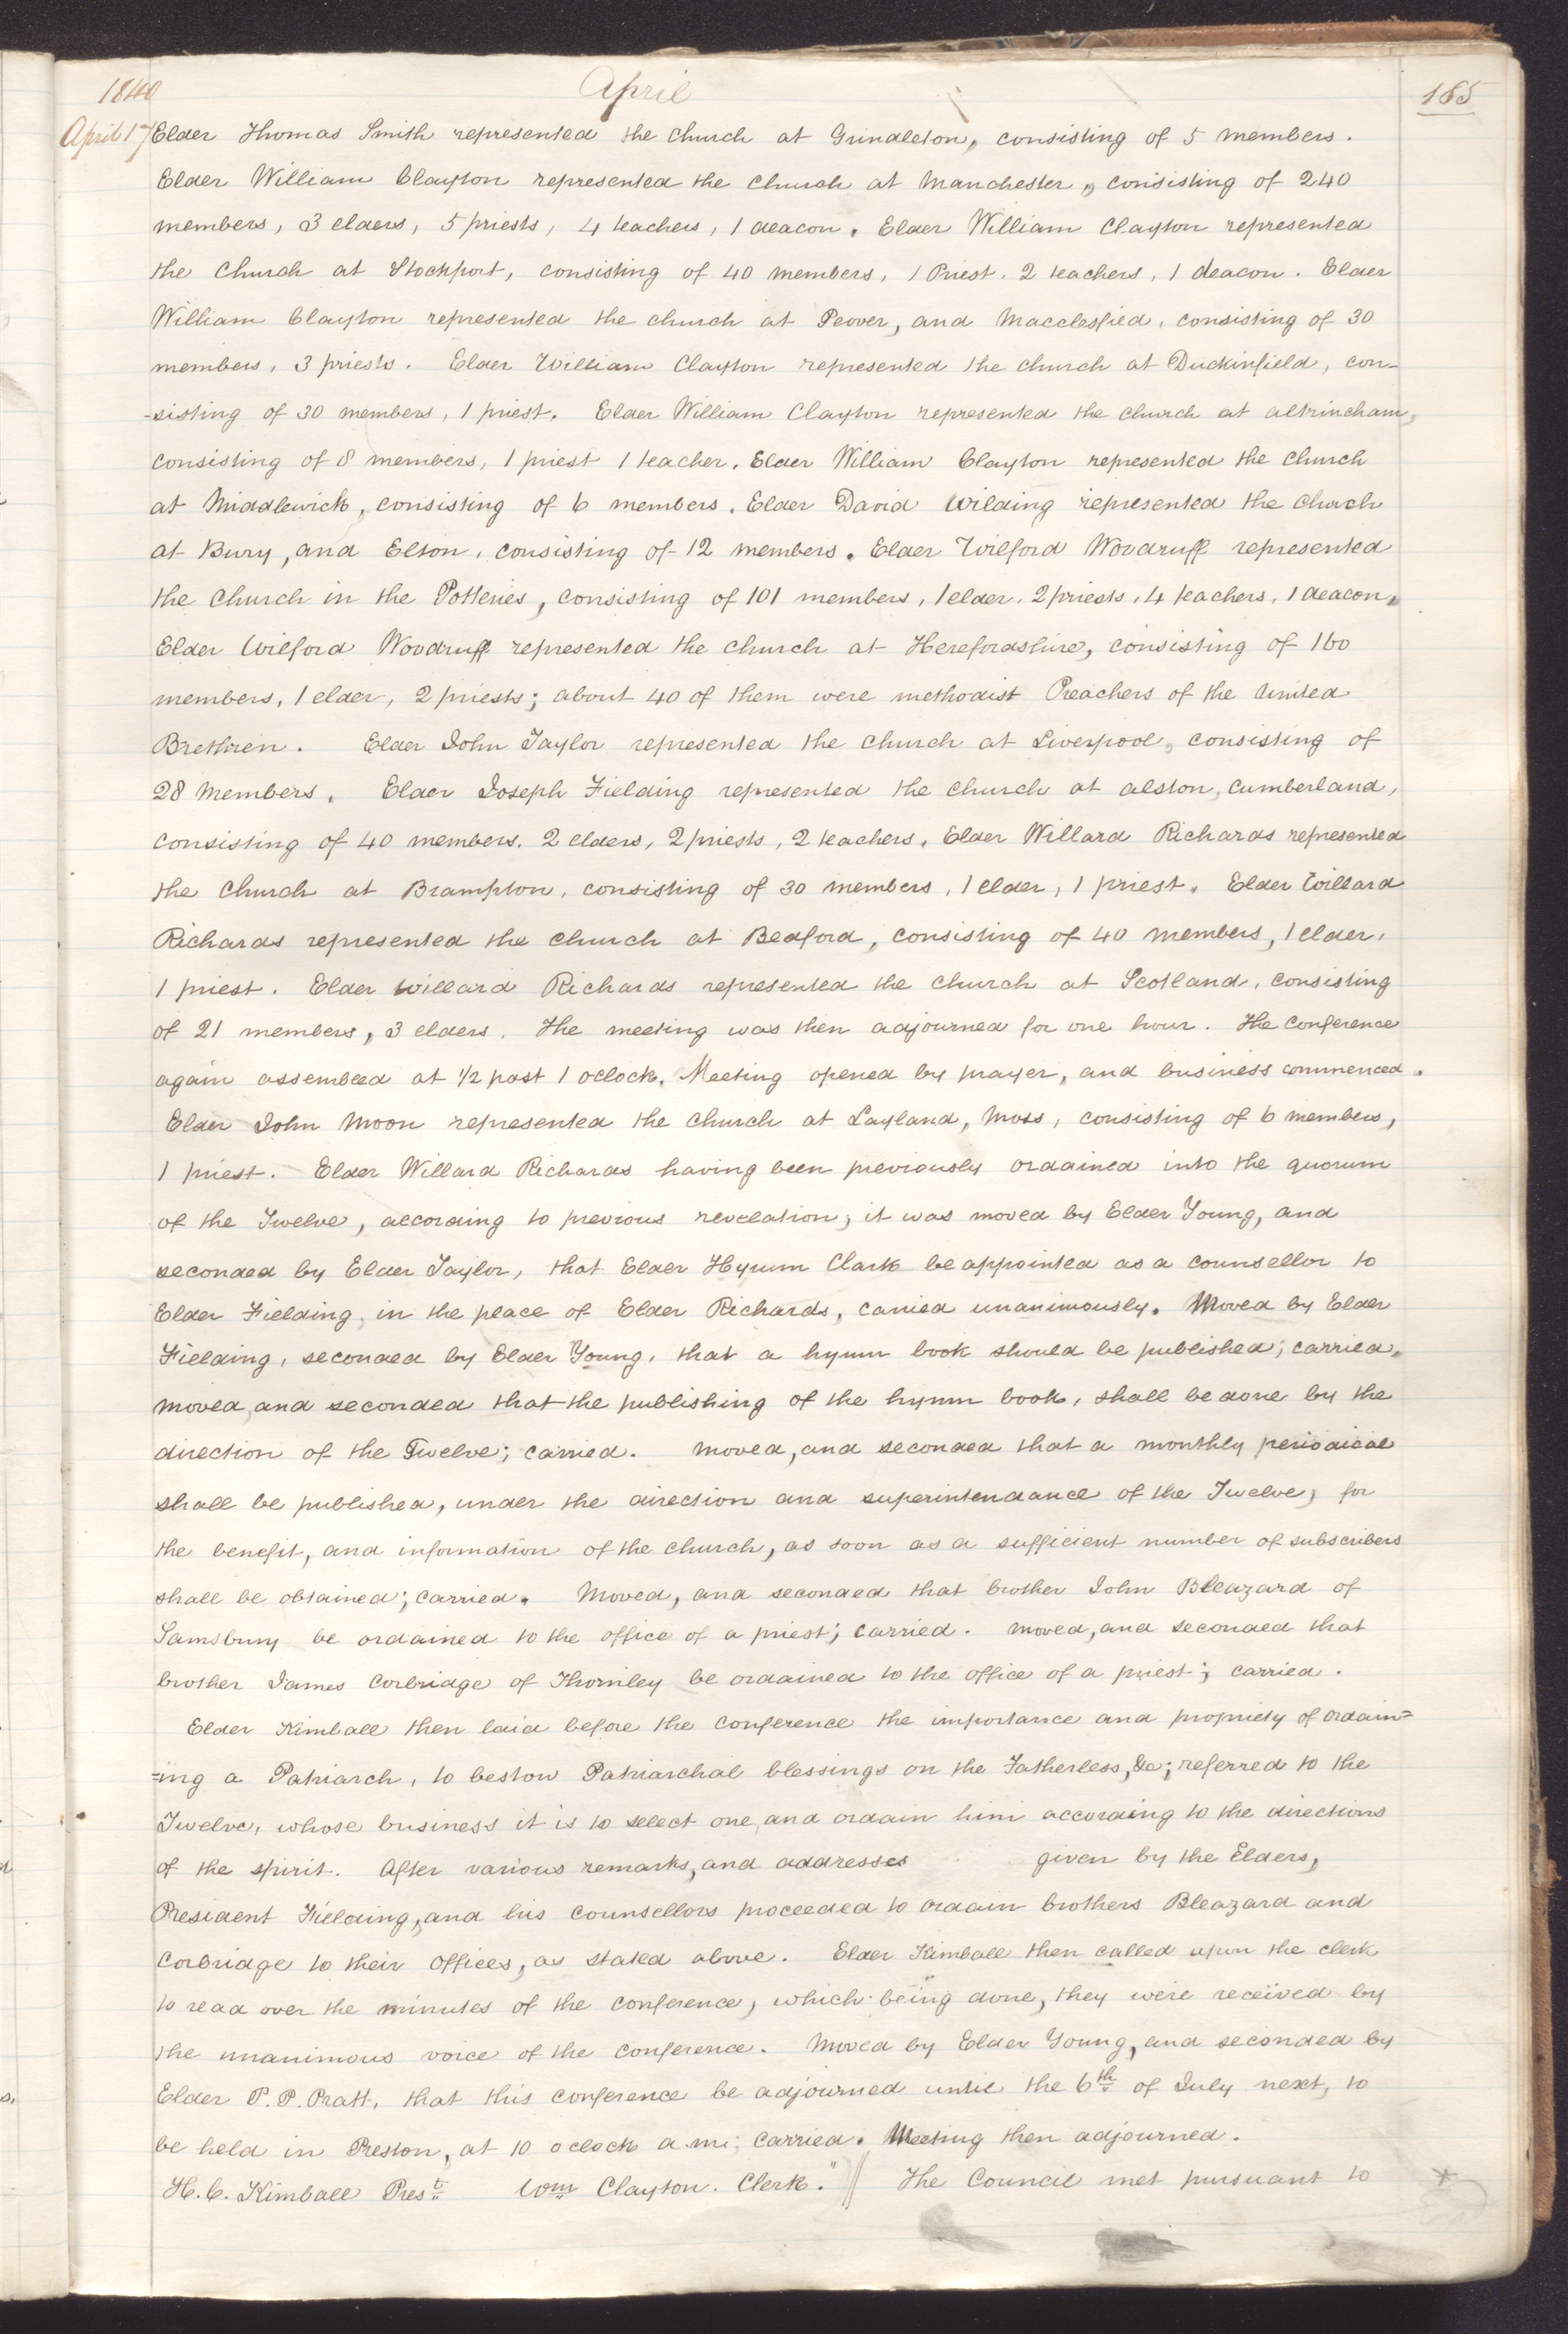 1840 April 165
April 17 Elder Thomas Smith represented the church at Grindleton, consisting of 5 members.
Elder William Clayton represented the church at Manchester, consisting of 240
members, 3 elders, 5 priests, 4 teachers, 1 deacon. Elder William Clayton represented
the church at Stockport, consisting of 40 members, 1 Priest, 2 teachers, 1 deacon. Elder
William Clayton represented the church at Peover, and Macclesfied, consisting of 30
members, 3 priests. Elder William Clayton represented the church at Duckinfield, con-
-sisting of 30 members, 1 priest. Elder William Clayton represented the church at altrincham,
consisting of 8 members, 1 priest 1 teacher. Elder William Clayton represented the church
at Middlewich, consisting of 6 members. Elder David Wilding represented the church
at Bury, and Elton, consisting of 12 members. Elder Wilford Woodruff represented
the church in the Potteries, consisting of 101 members, 1 elder, 2 priests, 4 teachers, 1 deacon,
Elder Wilford Woodruff represented the church at Herefordshire, consisting of 160
members, 1 elder, 2 priests; about 40 of them were methodist Preachers of the United
Brethren. Elder John Taylor represented the church at Liverpool, consisting of
28 members. Elder Joseph Fielding represented the church at alston, cumberland,
consisting of 40 members, 2 elders, 2 priests, 2 teachers. Elder Willard Richards represented
the church at Brampton, consisting of 30 members, 1 elder, 1 priest. Elder Willard
Richards represented the church at Bedford, consisting of 40 members, 1 elder,
1 priest. Elder Willard Richards represented the church at Scotland, consisting
of 21 members, 3 elders. The meeting was then adjourned for one hour. The conference
again assembled at 1/2 past 1 oclock. Meeting opened by prayer, and business commenced.
Elder John Moon represented the church at Layland, Moss, consisting of 6 members,
1 priest. Elder Willard Richards having been previously ordained into the quorum
of the Twelve, according to previous revelation, it was moved by Elder Young, and
seconded by Elder Taylor, that Elder Hyrum Clark be appointed as a counsellor to
Elder Fielding, in the place of Elder Richards, carried unanimously. Moved by Elder
Fielding, seconded by Elder Young, that a hymn book should be published; carried.
moved, and seconded that the publishing of the hymn book, shall be done by the
direction of the Twelve; carried. moved, and seconded that a monthly periodical
shall be published, under the direction and superintendance of the Twelve, for
the benefit, and information of the church, as soon as a sufficient number of subscribers
shall be obtained; carried. Moved, and seconded that brother John Bleazard of
Samsbury be ordained to the office of a priest; carried. moved, and seconded that
brother James Corbridge of Thornley be ordained to the office of a priest; carried.
Elder Kimball then laid before the conference the importance and propriety of ordain=
=ing a Patriarch, to bestow Patriarchal blessings on the Fatherless, &c; referred to the
Twelve, whose business it is to select one, and ordain him according to the directions
of the spirit. After various remarks, and addresses given by the Elders,
President Fielding, and his counsellors proceeded to ordain brothers Bleazard and
Corbridge to their offices, as stated above. Elder Kimball then called upon the clerk
to read over the minutes of the conference, which being done, they were received by
the unanimous voice of the conference. Moved by Elder Young, and seconded by
Elder P. P. Pratt, that this conference be adjourned until the 6th of July next, to
be held in Preston, at 10 oclock a.m; carried. Meeting then adjourned.
H. C. Kimball Prest Wm Clayton. Clerk." || The Council met pursuant to *